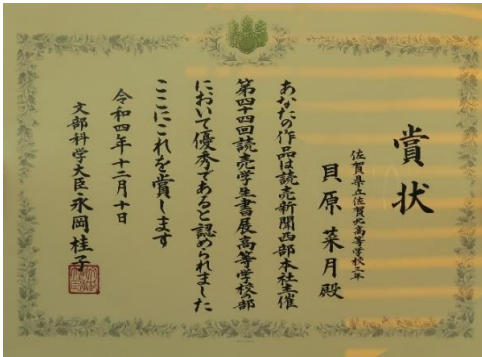 賞状
佐賀県立佐賀北高等学校三年
貝原菜月殿
あなたの作品は読売新聞西部本社主催
第四十四回読売学生書展高等学校の部
において優秀であると認められました
ここにこれを賞します
令和四年十二月十日
文部科学大臣永岡桂子